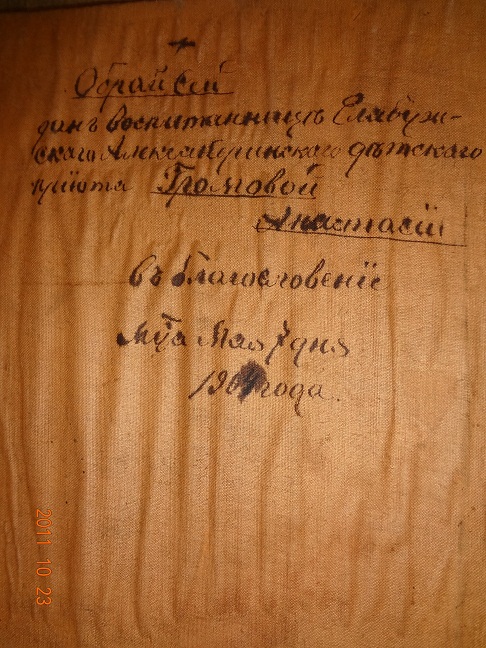 Образъ сей
данъ воспитанницѣ Елабуж-
скаго Александринскаго дѣтскаго
пріюта Громовой
Анастасіи
въ благословеніе
Мца Мая 7 дня
года.
2011 10 23